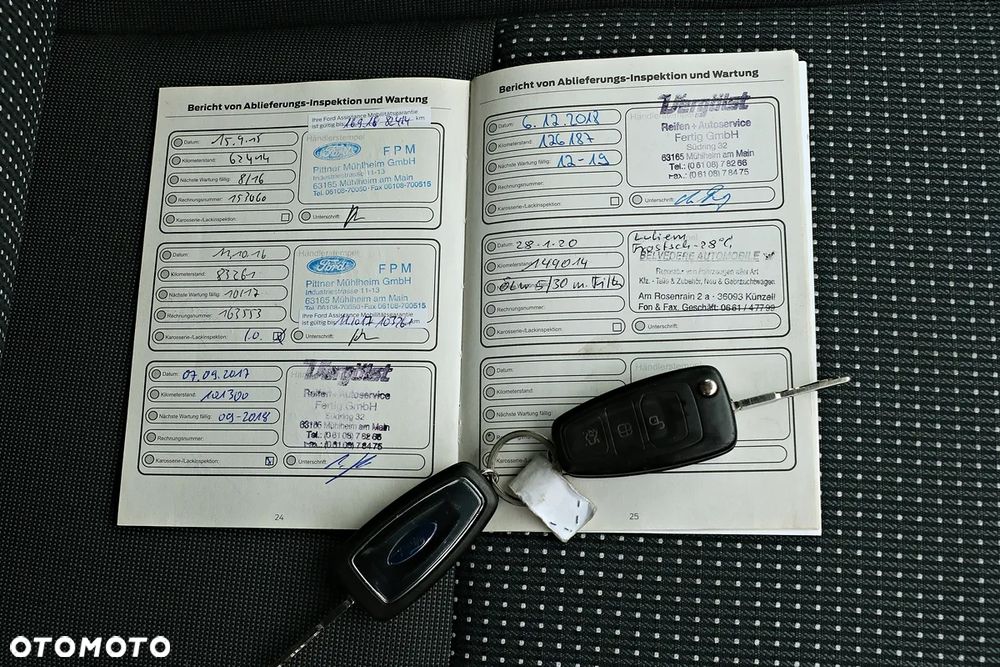 Bericht von Ablieferungs-Inspektion und Wartung
Ihre Ford Assistance Mobilitätsgarantie
ist gültig bis 16.9.16 82414 km
Datum: 15.9.15
Kilometerstand: 62414
Nächste Wartung fällig: 8/16
Rechnungsnummer: 157060
Karosserie-/Lackinspektion:
Händlerstempel
Ford FPM
Pittner Mühlheim GmbH
Industriestrasse 11-13
63165 Mühlheim am Main
Tel. 06108-70050 · Fax 06108-700515
Unterschrift:
Datum: 11.10.16
Kilometerstand: 83261
Nächste Wartung fällig: 10/17
Rechnungsnummer: 163553
Karosserie-/Lackinspektion: i.O.
Händlerstempel
Ford FPM
Pittner Mühlheim GmbH
Industriestrasse 11-13
63165 Mühlheim am Main
Tel. 06108-70050 · Fax 06108-700515
Ihre Ford Assistance Mobilitätsgarantie
ist gültig bis 11.10.17 103261 km
Unterschrift:
Datum: 07.09.2017
Kilometerstand: 101300
Nächste Wartung fällig: 09-2018
Rechnungsnummer:
Karosserie-/Lackinspektion:
Vergölst
Reifen + Autoservice
Fertig GmbH
Südring 32
63165 Mühlheim am Main
Tel.: (0 61 08) 7 82 66
Fax.: (0 61 08) 7 84 75
Unterschrift:
24
Bericht von Ablieferungs-Inspektion und Wartung
Datum: 6.12.2018
Kilometerstand: 126187
Nächste Wartung fällig: 12-19
Rechnungsnummer:
Karosserie-/Lackinspektion:
Vergölst
Händlerstempel
Reifen + Autoservice
Fertig GmbH
Südring 32
63165 Mühlheim am Main
Tel.: (0 61 08) 7 82 66
Fax.: (0 61 08) 7 84 75
Unterschrift:
Datum: 28.1.20
Kilometerstand: 149014
5/30 m. Filter
Rechnungsnummer:
Karosserie-/Lackinspektion:
Frostsch -28°C
BELVEDERE AUTOMOBILE
Reparatur von Fahrzeugen aller Art
Kfz. - Teile & Zubehör, Neu & Gebrauchtwagen
Am Rosenrain 2 a · 36093 Künzell
Fon & Fax. Geschäft: 06 61 / 477 99
Unterschrift:
Datum:
Kilometerstand:
Händlerstempel
25
Ford
OTOMOTO